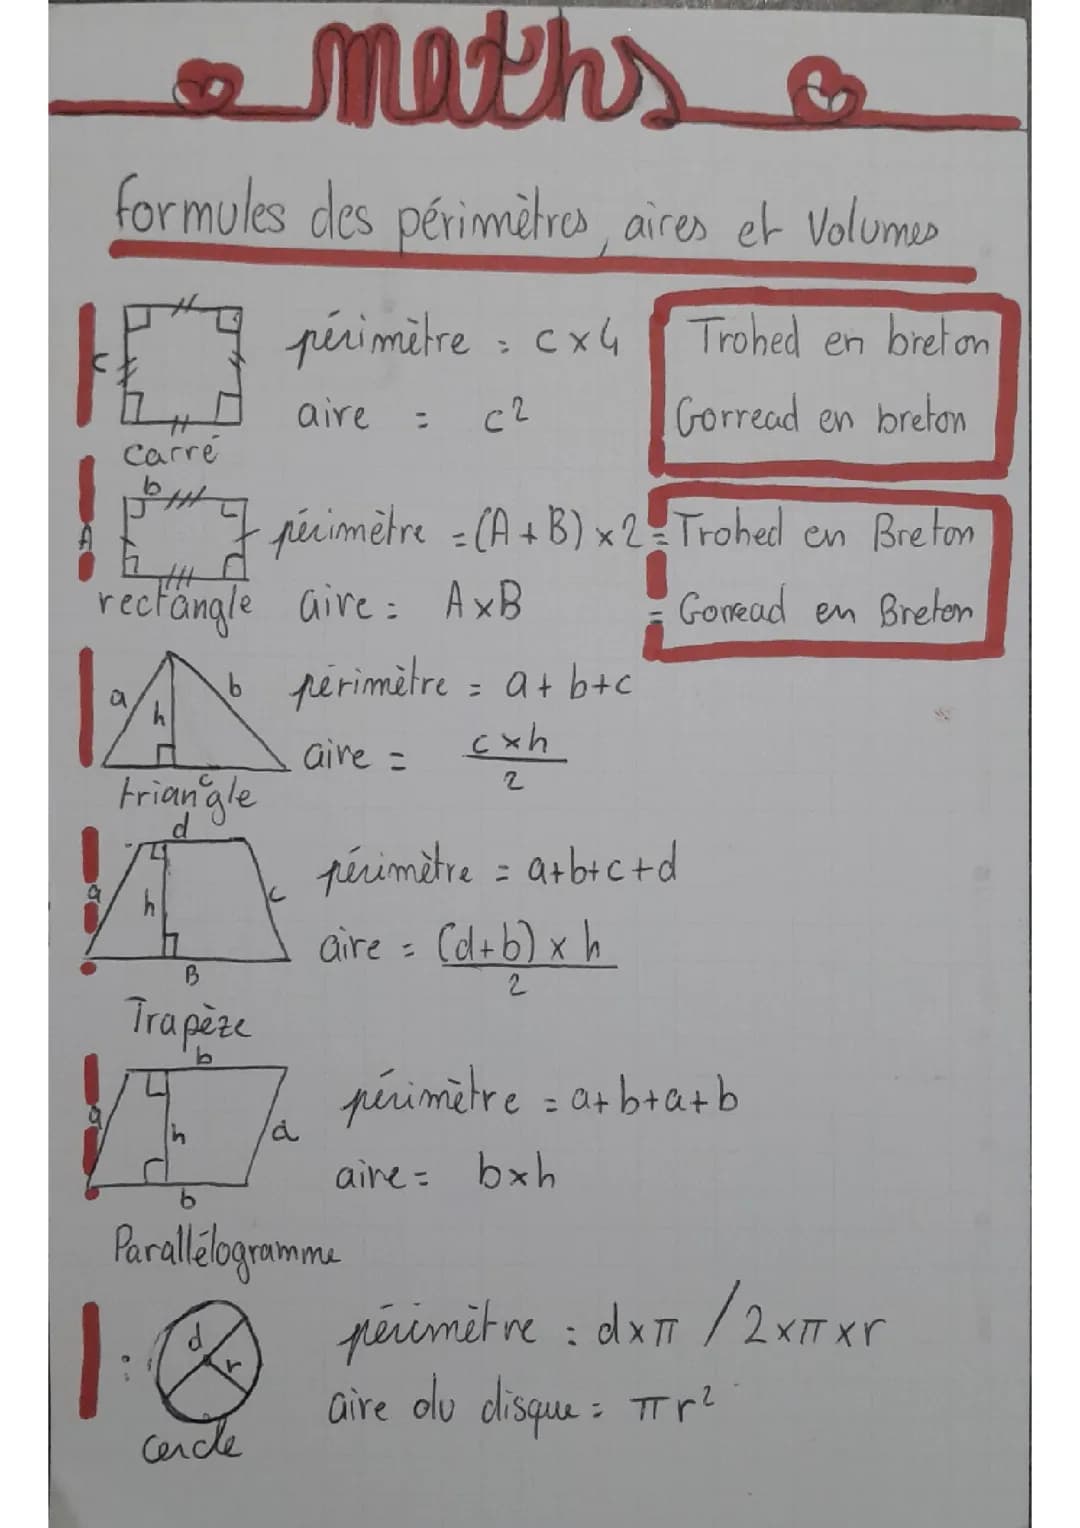 maths
formules des périmètres, aires et Volumes
c
périmètre : c x 4
Trohed en breton
aire = c²
Gorread en breton
Carré
b
A
périmètre = (A + B) x 2 = Trohed en Breton
rectangle aire = A x B
= Gorread en Breton
a
b
h
périmètre = a + b + c
aire = c x h
2
c
triangle
d
a
h
c
périmètre = a+b+c+d
aire = (d+b) x h
2
B
Trapèze
b
a
h
a
périmètre = a+b+a+b
aire = b x h
b
Parallélogramme
d
r
périmètre : d x π / 2 x π x r
aire du disque = π r²
cercle